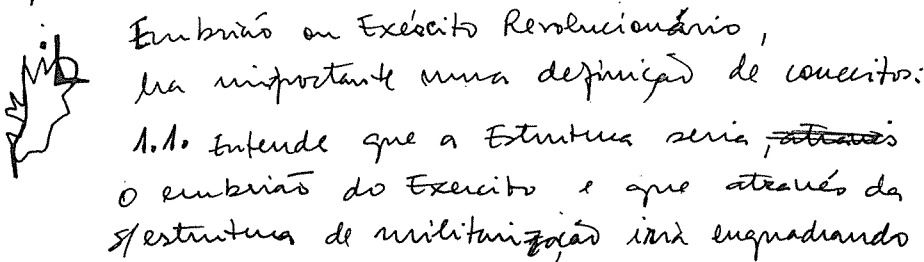 Embrião ou Exército Revolucionário,
ha importante uma definição de conceitos:
1.1. Entende que a Estrutura seria, ~~através~~
o embrião do Exercito e que através da
s/estrutura de militarização irá enquadrando